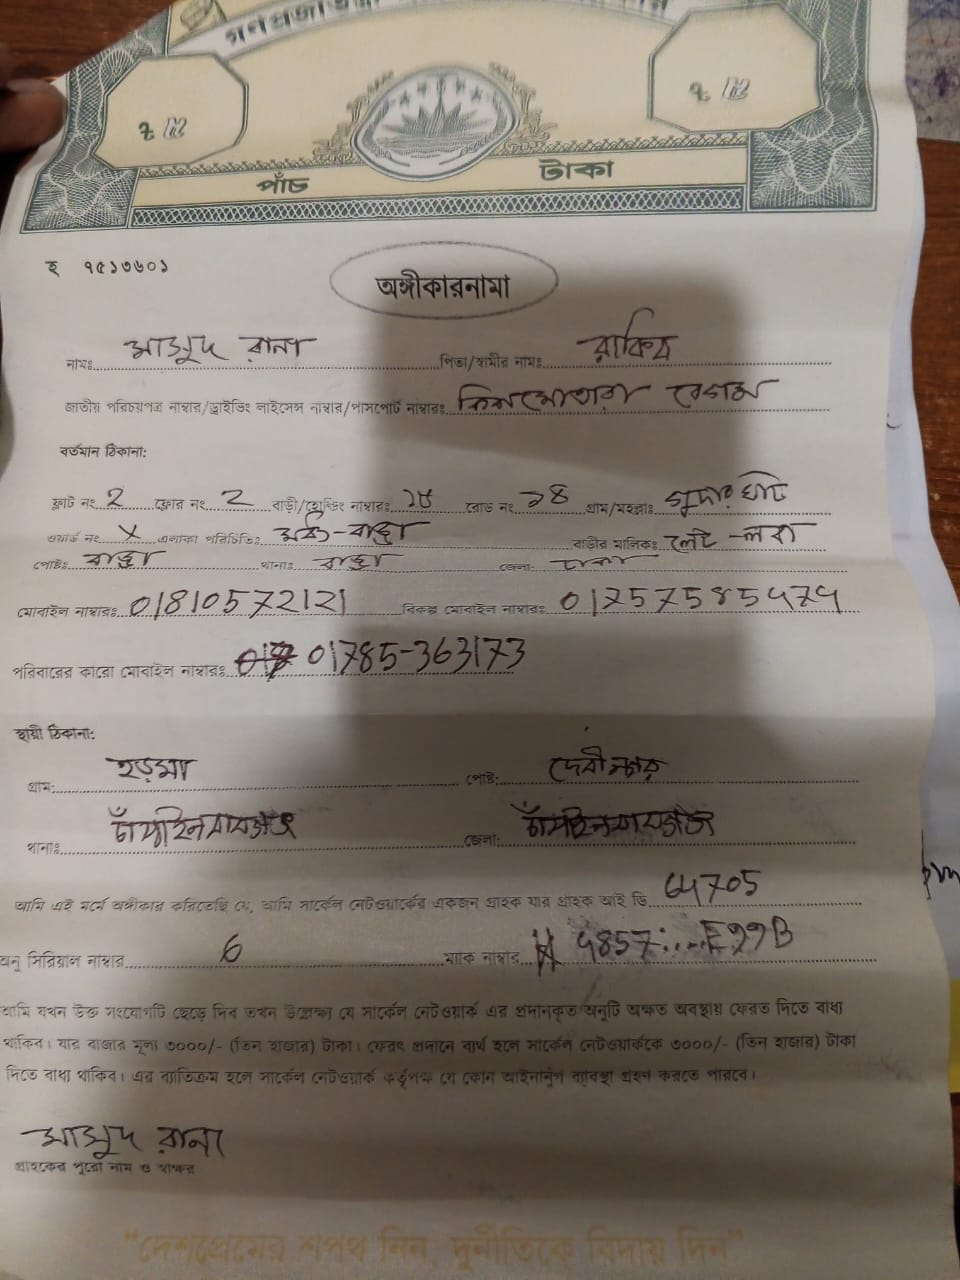 গণপ্রজাতন্ত্রী
পাঁচ টাকা
হ ৭৫১৩৬০১
অঙ্গীকারনামা
নামঃ মাসুদ রানা পিতা/স্বামীর নামঃ রাকিব
জাতীয় পরিচয়পত্র নাম্বার/ড্রাইভিং লাইসেন্স নাম্বার/পাসপোর্ট নাম্বারঃ বেগম
বর্তমান ঠিকানা:
ফ্লাট নং 2 ফ্লোর নং 2 বাড়ী/হোল্ডিং নাম্বারঃ ১৫ রোড নং ১৪ গ্রাম/মহল্লাঃ গুদারাঘাট
ওয়ার্ড নং X এলাকা পরিচিতিঃ বাড্ডা বাড়ীর মালিকঃ
পোষ্টঃ বাড্ডা থানাঃ বাড্ডা জেলা: ঢাকা
মোবাইল নাম্বারঃ 01810572121 বিকল্প মোবাইল নাম্বারঃ
পরিবারের কারো মোবাইল নাম্বারঃ 01785-363173
স্থায়ী ঠিকানা:
গ্রাম: হড়মা পোষ্ট: দেবীনগর
থানাঃ চাঁপাইনবাবগঞ্জ জেলা: চাঁপাইনবাবগঞ্জ
আমি এই মর্মে অঙ্গীকার করিতেছি যে, আমি সার্কেল নেটওয়ার্কের একজন গ্রাহক যার গ্রাহক আই ডি 64705
অনু সিরিয়াল নাম্বার 6 ম্যাক নাম্বার
আমি যখন উক্ত সংযোগটি ছেড়ে দিব তখন উল্লেক্ষ্য যে সার্কেল নেটওয়ার্ক এর প্রদানকৃত অনুটি অক্ষত অবস্থায় ফেরত দিতে বাধ্য
থাকিব। যার বাজার মূল্য ৩০০০/- (তিন হাজার) টাকা। ফেরৎ প্রদানে ব্যর্থ হলে সার্কেল নেটওয়ার্ককে ৩০০০/- (তিন হাজার) টাকা
দিতে বাধ্য থাকিব। এর ব্যতিক্রম হলে সার্কেল নেটওয়ার্ক কর্তৃপক্ষ যে কোন আইনানুগ ব্যাবস্থা গ্রহন করতে পারবে।
মাসুদ রানা
গ্রাহকের পুরো নাম ও স্বাক্ষর
"দেশপ্রেমের শপথ নিন, দুর্নীতিকে বিদায় দিন"